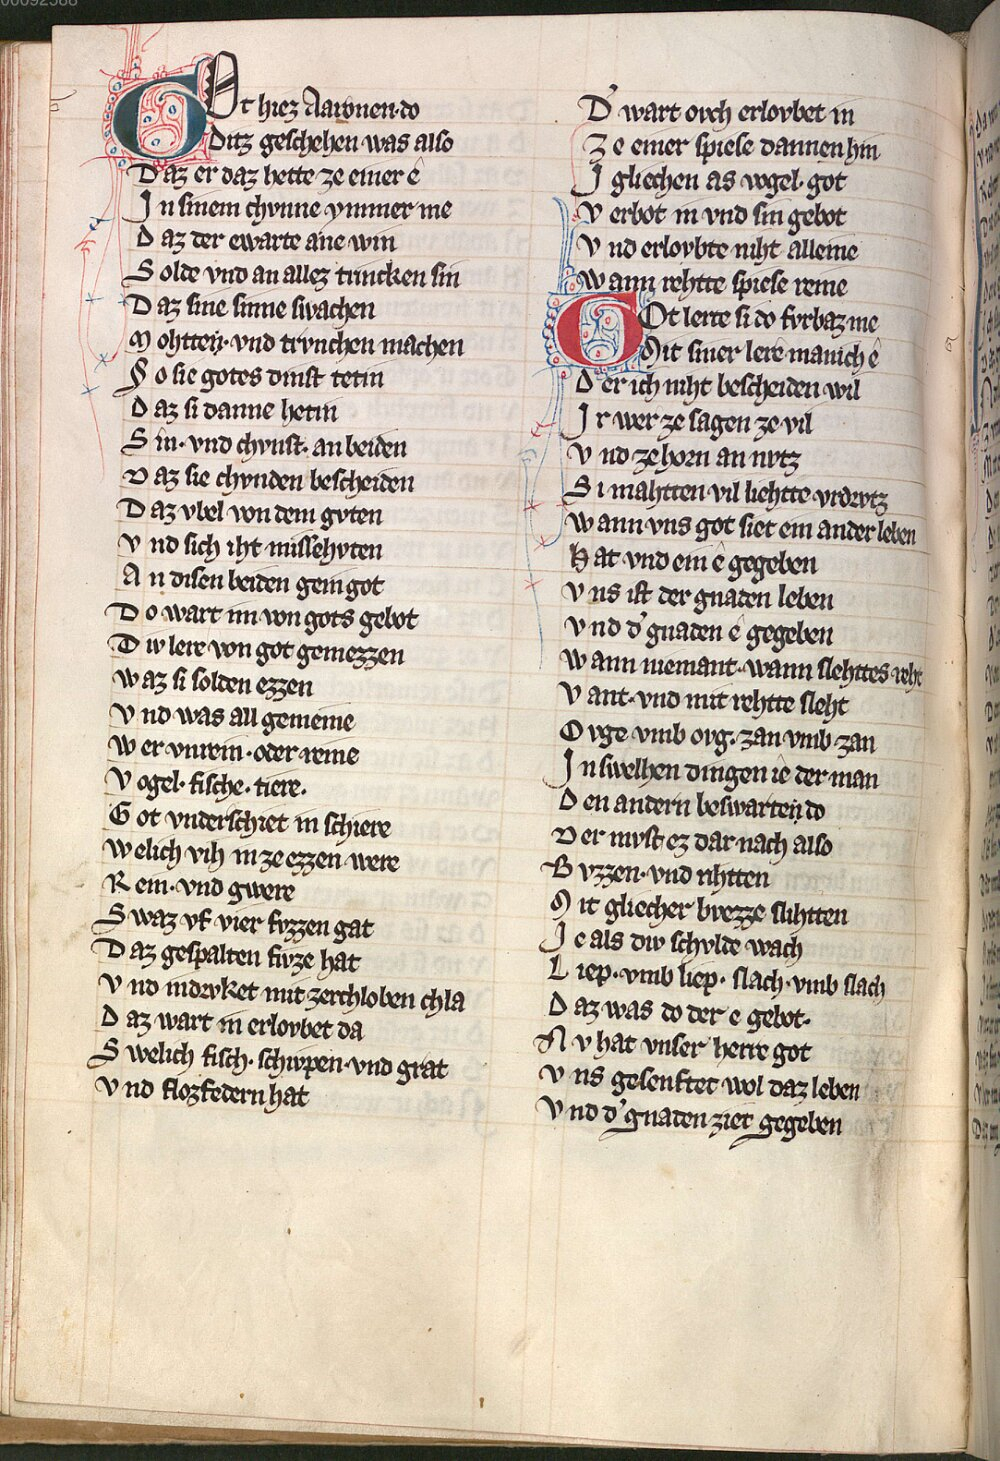 GOt hiez Aaronen do
Ditz geschehen was also
Daz er daz hette ze einer ê
In sinem chvnne ymmer me
Daz der ewarte ane win
Solde vnd an allez trincken sin
Daz sine sinne swachen
Mohtten vnd trvnchen machen
So sie gotes dinst tetin
Daz si danne hetin
Sin vnd chvnst an beiden
Daz sie chvnden bescheiden
Daz vbel von dem gvten
Vnd sich iht missehvten
An disen beiden gein got
Do wart im von gots gebot
Div lere von got gemezzen
Waz si solden ezzen
Vnd was all gemeine
Wer vnrein · oder reine
Vogel · fische · tiere ·
Got vnderschiet in schiere
Welich vih in ze ezzen were
Rein · vnd gwere
Swaz vf vier fvzzen gat
Daz gespalten fivze hat
Vnd indrvket mit zerchloben chla
Daz wart in erlovbet da
Swelich fisch · schvpen · vnd grat
Vnd flozfedern hat
D' wart ovch erlovbet in
Ze einer spiese dannen hin
I gliechen as vogel · got
Verbot in vnd sin gebot
Vnd erlovbte niht alleine
Wann rehtte spiese reine
GOt lerte si do fvrbaz me
Mit siner lere manich ê
Der ich niht bescheiden wil
Ir wer ze sagen ze vil
Vnd ze horn an nvtz
Si mahtten vil liehtte vrdrvtz
Wann vns got siet ein ander leben
Hat vnd ein ê gegeben
Vns ist der gnaden leben
Vnd d' gnaden ê gegeben
Wann niemant · wann slehttes reht
Vant · vnd mit rehtte sleht
Ovge vmb ovg · zan vmb zan
In swelhen dingen ie der man
Den andern beswarten do
Der mvst ez dar nach also
Bvzzen · vnd rihtten
Mit gliecher bvezze slihtten
Ie als div schvlde wach
Liep · vmb liep · slach · vmb slach
Daz was do der e gebot ·
Nv hat vnser herre got
Vns gesenftet wol daz leben
Vnd d' gnaden ziet gegeben